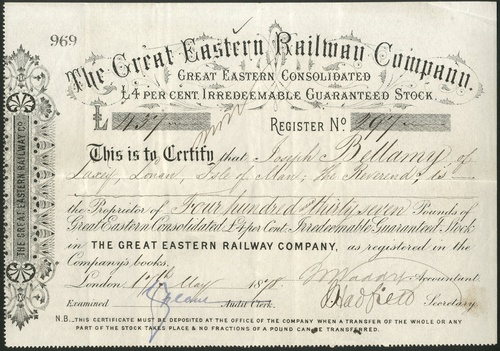 969
The Great Eastern Railway Company.
GREAT EASTERN CONSOLIDATED
£4 PER CENT. IRREDEEMABLE GUARANTEED STOCK.
£ 437 REGISTER No. 797
This is to Certify that Joseph Bellamy of
Laxey, Lonan, Isle of Man, the Reverend, is
the Proprietor of Four hundred & thirty seven Pounds of
Great Eastern Consolidated £4 per Cent. Irredeemable Guaranteed Stock
in THE GREAT EASTERN RAILWAY COMPANY, as registered in the
Company's books.
London, May 1878 Accountant.
Examined Audit Clerk. Hadfield Secretary.
N.B. THIS CERTIFICATE MUST BE DEPOSITED AT THE OFFICE OF THE COMPANY WHEN A TRANSFER OF THE WHOLE OR ANY
PART OF THE STOCK TAKES PLACE & NO FRACTIONS OF A POUND CAN BE TRANSFERRED.
THE GREAT EASTERN RAILWAY CO.